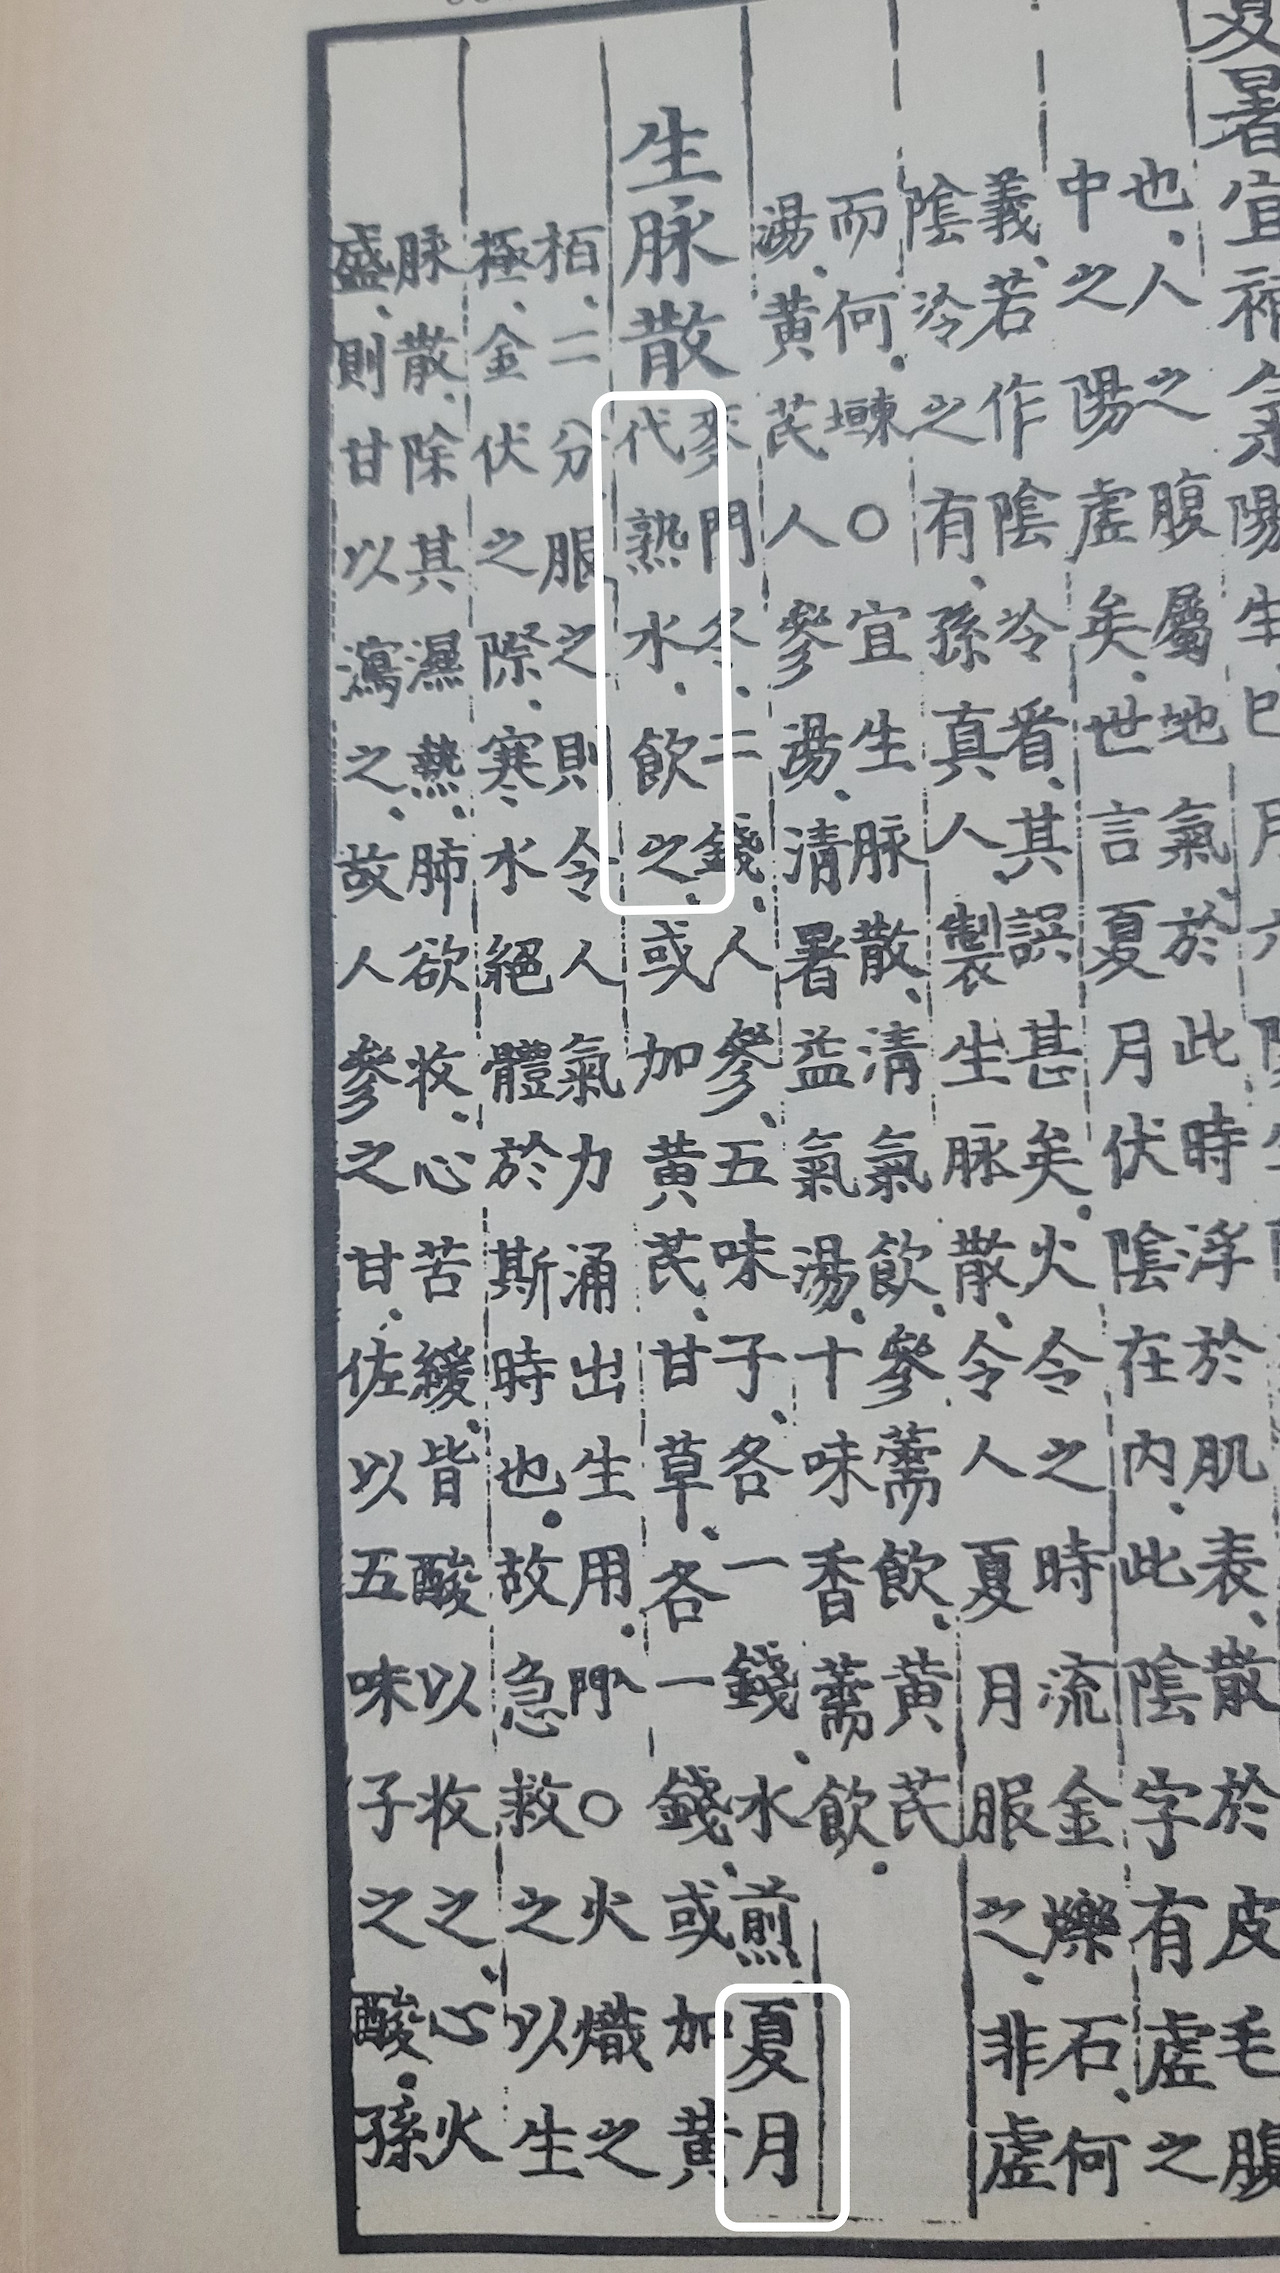 夏暑宜補氣
也、人之腹屬地氣、於此時浮於肌表、散於皮毛腹
中之陽虛矣、世言夏月伏陰在內、此陰字有虛之
義、若作陰冷看、其誤甚矣、火令之時流金爍石、何
陰冷之有、孫真人、製生脉散、令人夏月服之、非虛
而何、垣東○宜生脉散、清氣飮、參薷飮、黃芪
湯、黃芪人參湯、清暑益氣湯、十味香薷飮、
生脉散
麥門冬、二錢、人參、五味子、各一錢、水煎夏月
代熟水、飮之、或加黃芪、甘草、各一錢、或加黃
栢、二分服之則令人氣力涌出生用、入門○火熾之
極、金伏之際、寒水絕體於斯時也、故急救之以生
脉散、除其濕熱、肺欲收、心苦緩、皆酸以收之、心火
盛、則甘以瀉之、故人參之甘、佐以五味子之酸、孫